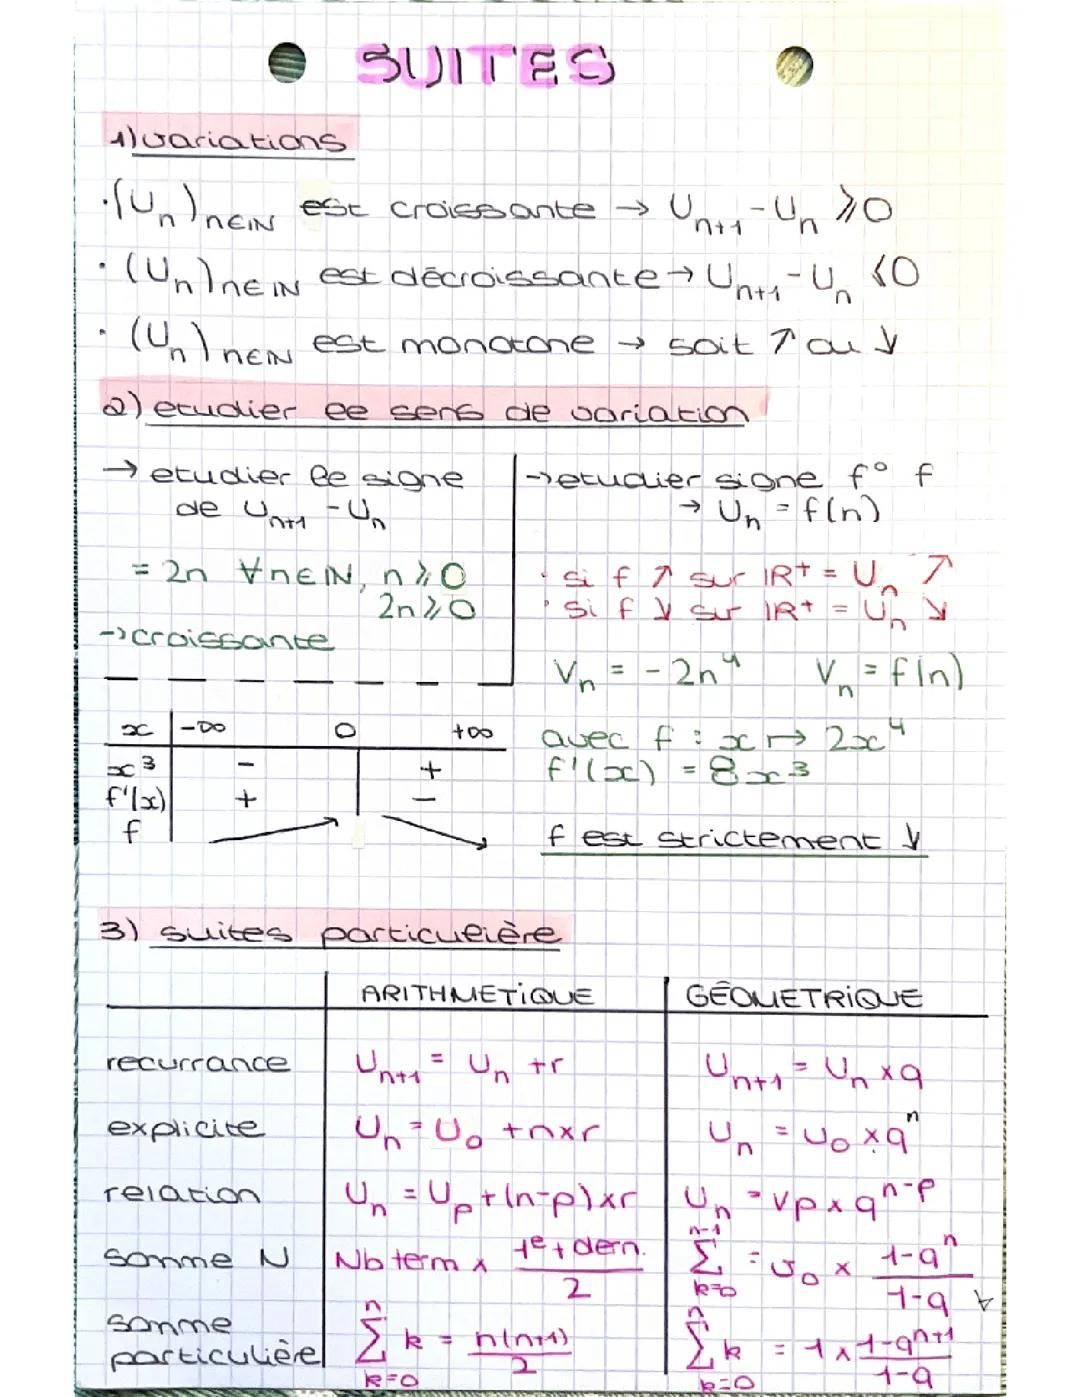 SUITES
1) variations
· (Un)n∈ℕ est croissante → Un+1 - Un ⩾ 0
· (Un)n∈ℕ est décroissante → Un+1 - Un ⩽ 0
· (Un)n∈ℕ est monotone → soit ↗ ou ↘
2) etudier le sens de variation
→ etudier le signe
de Un+1 - Un
= 2n ∀n∈ℕ, n ⩾ 0
2n ⩾ 0
→ croissante
→ etudier signe f° f
→ Un = f(n)
· si f ↗ sur ℝ+ = Un ↗
· si f ↘ sur ℝ+ = Un ↘
Vn = -2n⁴ Vn = f(n)
avec f : x ↦ 2x⁴
f'(x) = 8x³
f est strictement ↘
x -∞ 0 +∞
x³ - +
f'(x) + -
f
3) suites particulière
ARITHMETIQUE GÉOMETRIQUE
recurrance Un+1 = Un + r Un+1 = Un × q
explicite Un = U₀ + n×r Un = U₀ × qⁿ
relation Un = Up + (n-p)×r Un = Vp × qⁿ⁻ᵖ
somme N Nb term × (1e + dern.)/2 ∑ k=0 n-1 = U₀ × (1-qⁿ)/(1-q)
somme
particulière ∑ k=0 n k = n(n+1)/2 ∑ k=0 n k = 1 × (1-qⁿ⁺¹)/(1-q)